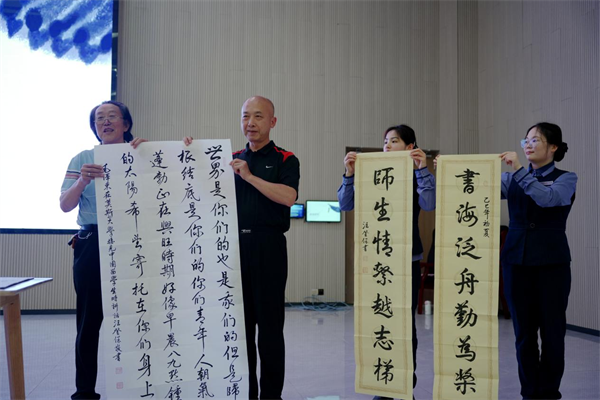 世界是你们的也是我们的但是歸
根结底是你们的你们青年人朝氣
蓬勃正在興旺时期好像早晨八九點鐘
的太陽希望寄托在你们身上
師生情繫越志梯
乙巳年初夏
書海泛舟勤為槳